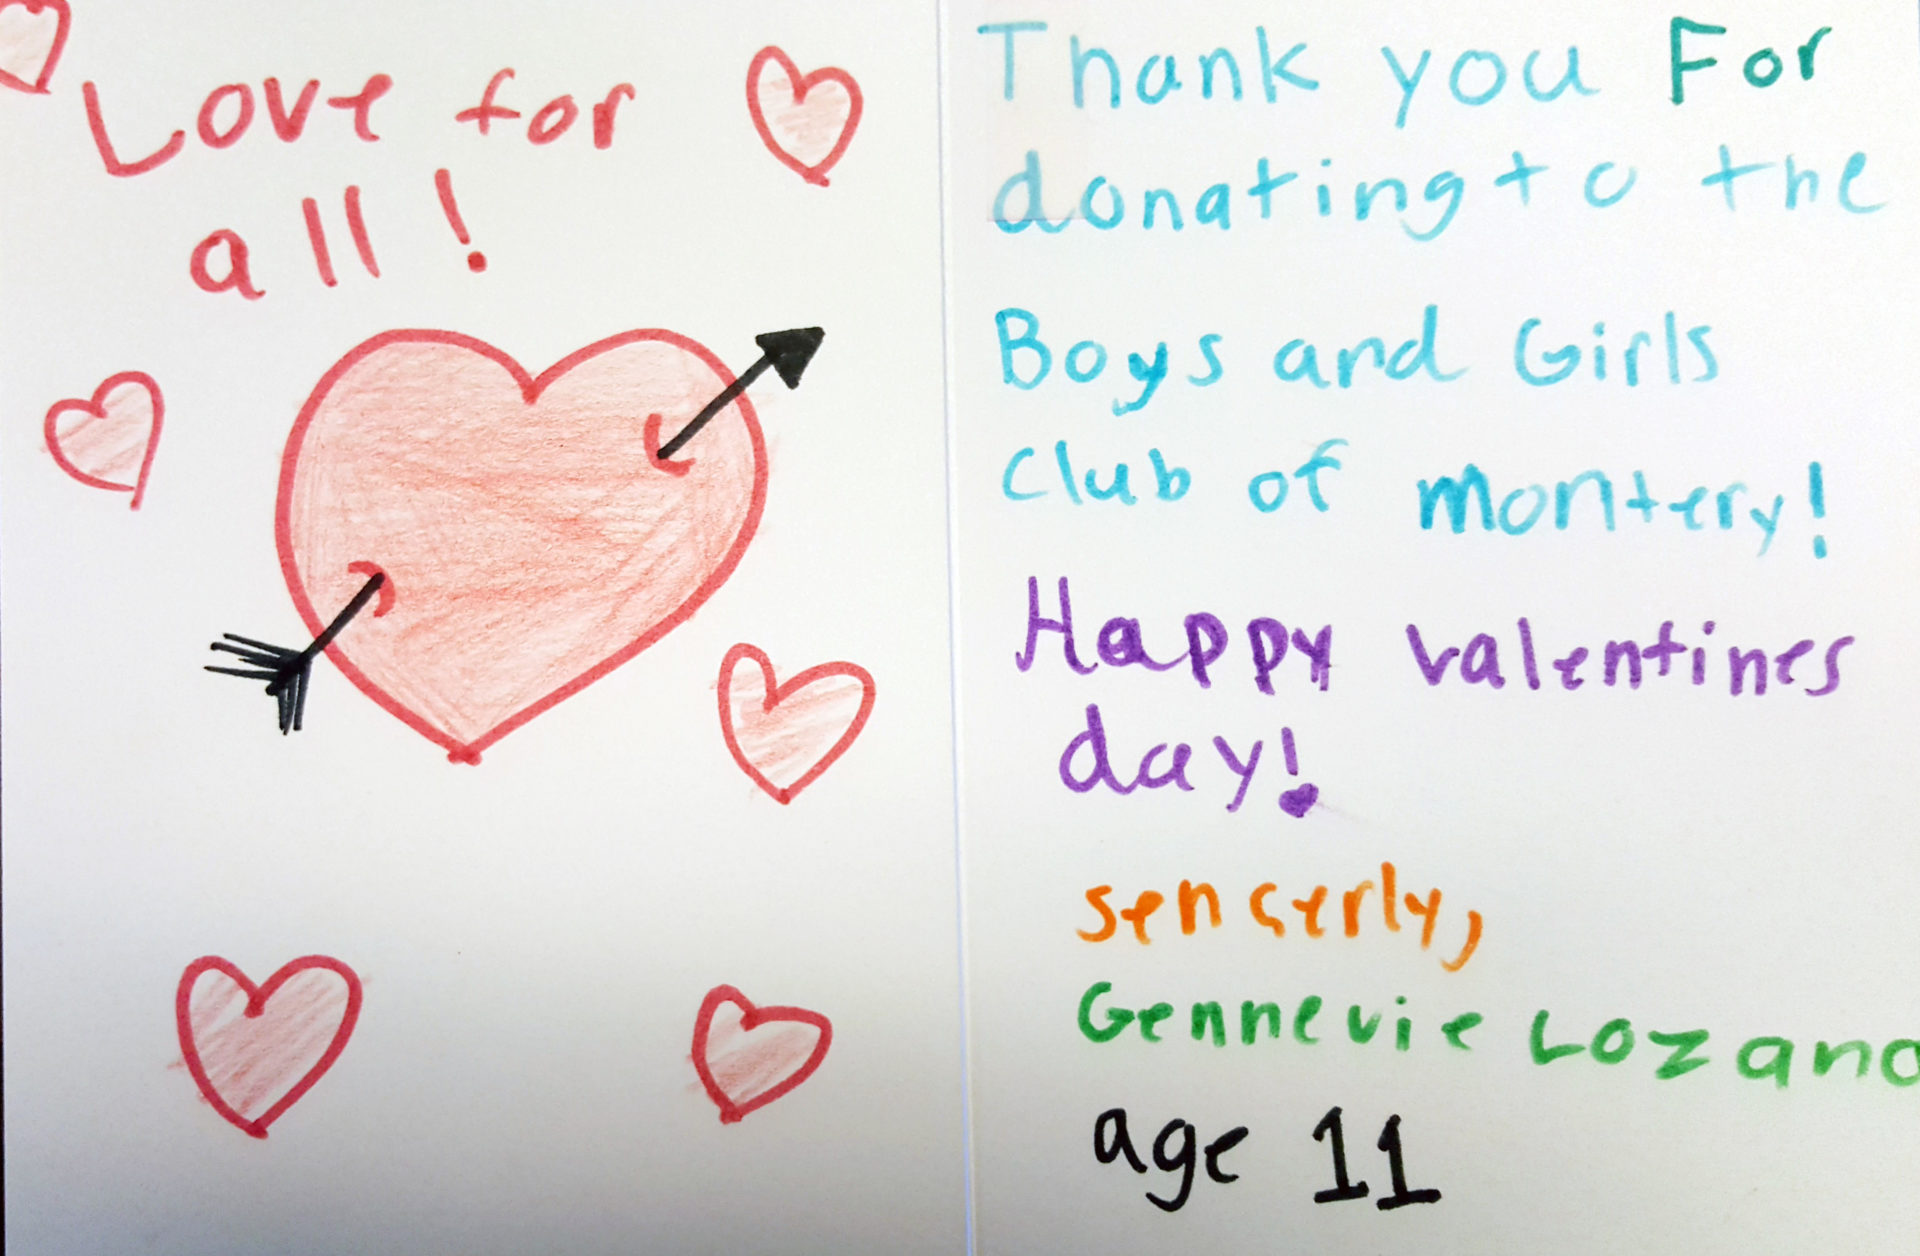 Love for
all!
Thank you For
donating to the
Boys and Girls
Club of montery!
Happy valentines
day!
sencerly,
Gennevie Lozano
age 11